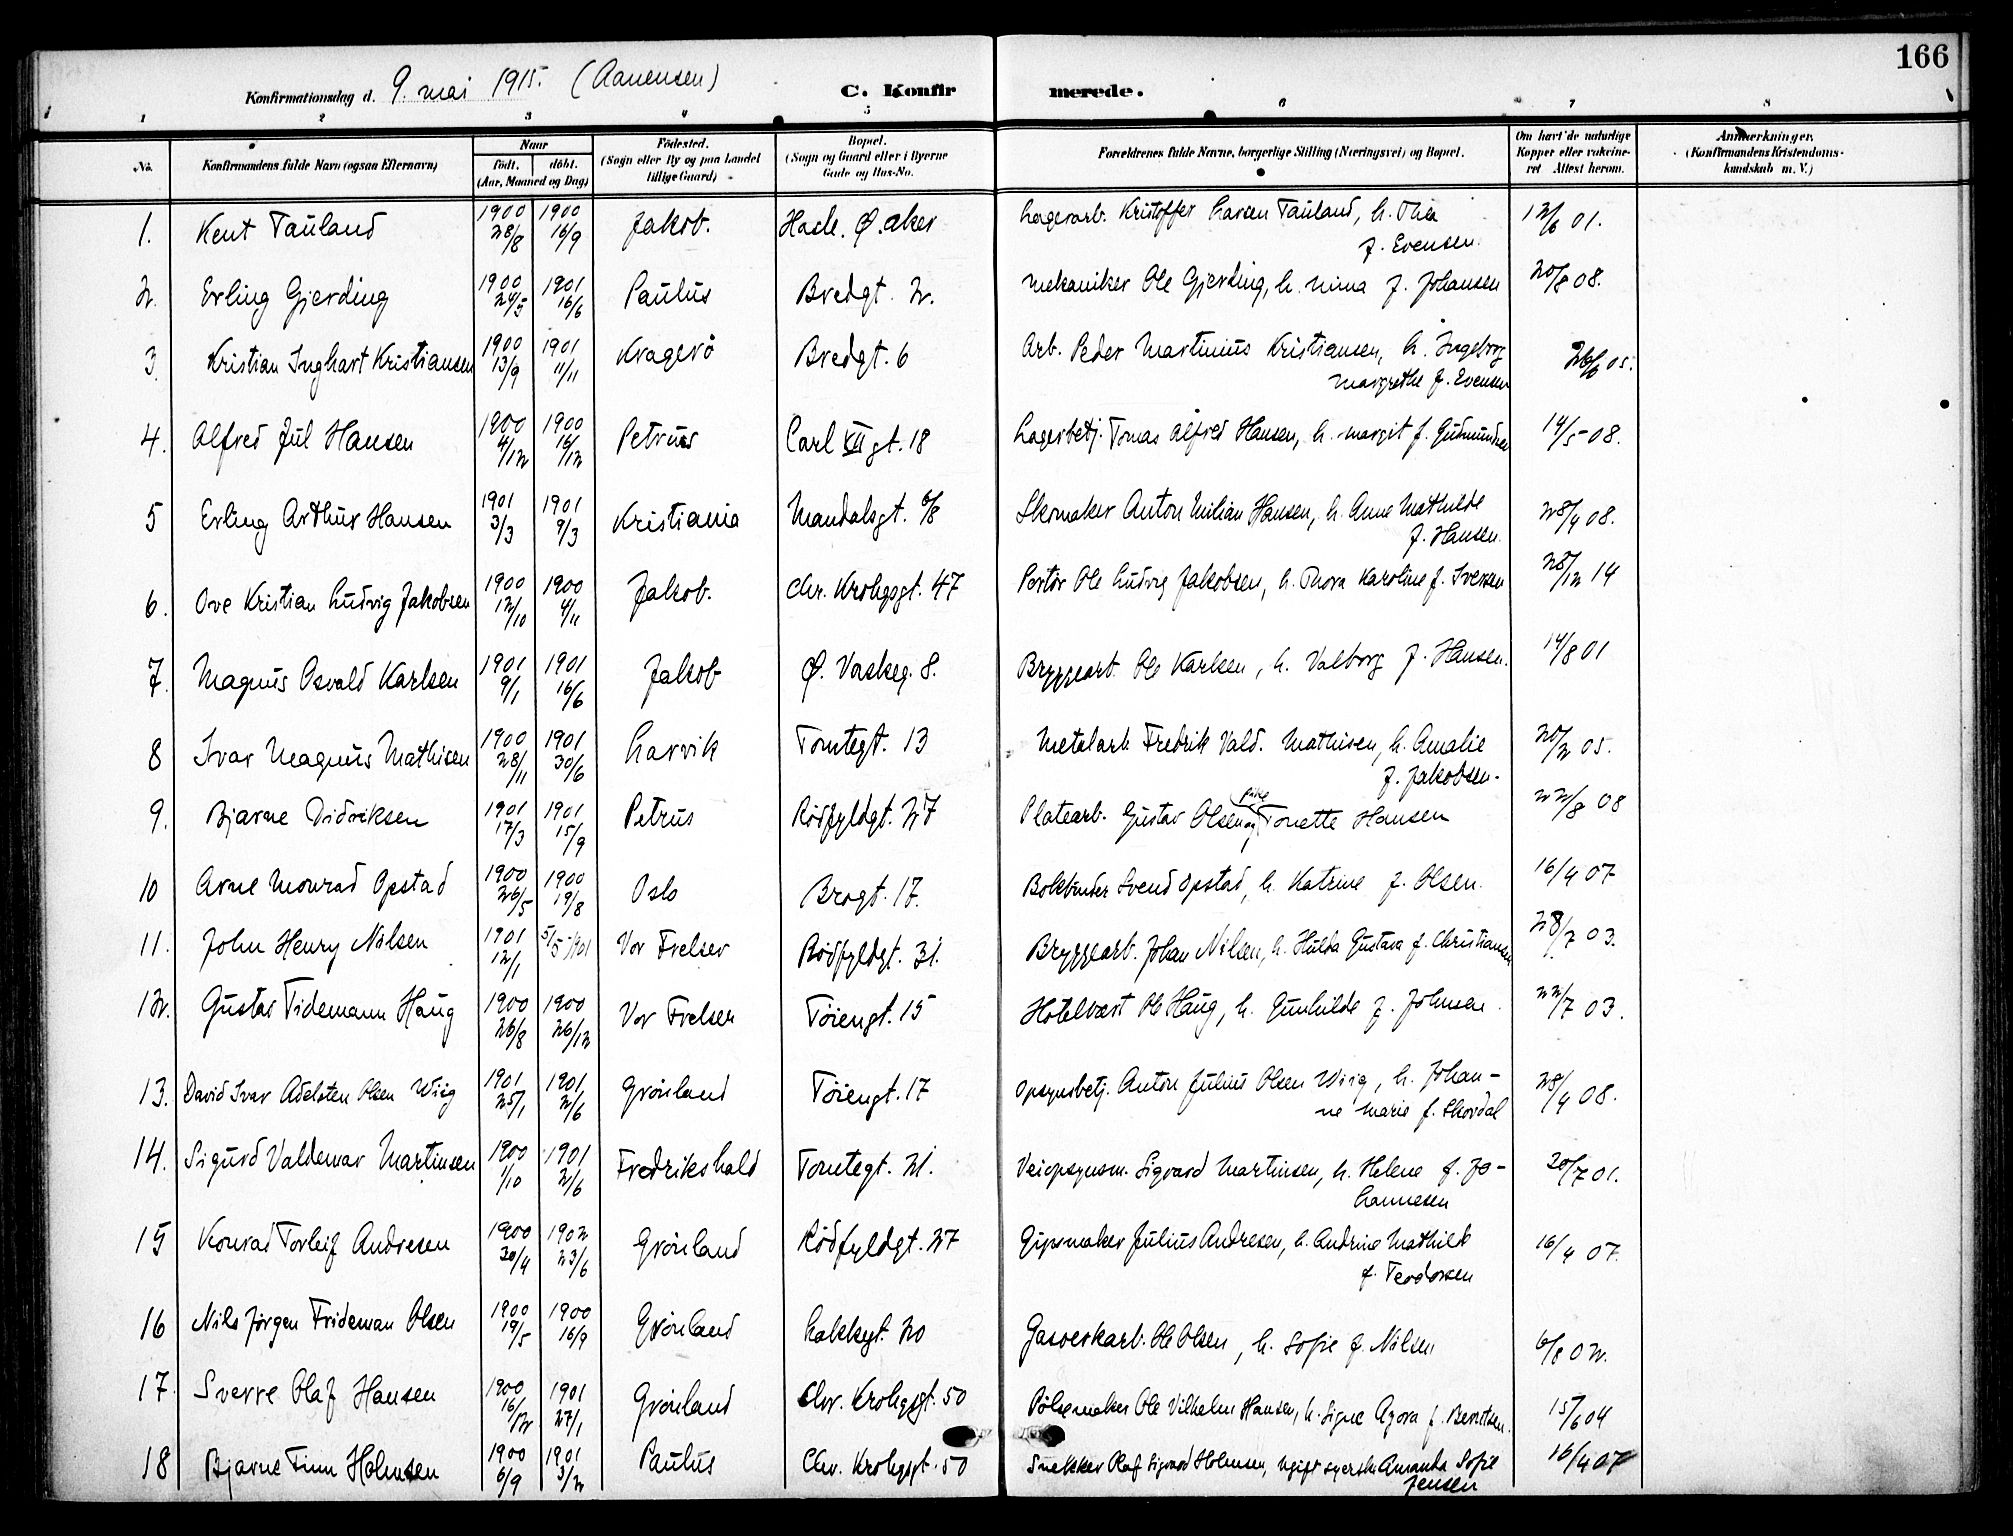 166
Konfirmationsdag d. 9. mai 1915. (Aanensen) C. Konfirmerede.
1 2 3 4 5 6 7 8
No. Konfirmandens fulde Navn (ogsaa Efternavn) Naar født. døbt. (Aar, Maaned og Dag) Fødested. (Sogn eller By og paa Landet tillige Gaard) Bopæl. (Sogn og Gaard eller i Byerne Gade og Hus-No. Forældrenes fulde Navne, borgerlige Stilling (Næringsvei) og Bopæl. Om havt de naturlige Kopper eller vakcineret Attest herom. Anmærkninger. (Konfirmandens Kristendomskundskab m. V.)
1. Kent Tauland 1900 28/8 1900 16/9 Jakob. Hasle. Ø. aker Lagerarb. Kristoffer Larsen Tauland, h. Thea f. Evensen. 12/6 01.
2. Erling Gjerding 1900 24/5 1901 16/6 Paulus Bredgt. 2. Mekaniker Ole Gjerding, h. Mina f. Johansen 20/8 08.
3. Kristian Inghart Kristiansen 1900 13/9 1901 11/11 Kragerö Bredgt. 6 Arb. Peder Martinius Kristiansen, h. Ingeborg Margrethe f. Evensen 26/6 05.
4. Alfred Jul Hansen 1900 4/12 1900 16/12 Petrus Carl XII gt. 18 Lagerbetj. Tomas Alfred Hansen, h. Margit f. Gudmundsen 14/5 08.
5 Erling Arthur Hansen 1901 3/3 1901 9/3 Kristiania Mandalsgt. 6/8 Skomaker Anton Milian Hansen, h. Anne Mathilde f. Hansen. 28/4 08.
6. Ove Kristian Ludvig Jakobsen 1900 12/10 1900 4/11 Jakob. Chr. Krohgsgt. 47 Portör Ole Ludvig Jakobsen, h. Thora Karoline f. Iversen 28/12 14
7. Magnus Osvald Karlsen 1901 9/1 1901 16/6 Jakob Ø. Vaskeg. 8. Bryggearb. Ole Karlsen, h. Valborg f. Hansen. 14/8 01
8 Ivar Magnus Mathisen 1900 28/11 1901 30/6 Larvik Tomtegt. 13 Metalarb. Fredrik Vald. Mathisen, h. Amalie f. Jakobsen. 20/2 05.
9. Bjarne Didriksen 1901 17/3 1901 15/9 Petrus Rödfyldgt. 27 Platearb. Gustav Olsen og pike Tonette Hansen 22/8 08
10 Arne Monrad Opstad 1900 26/5 1900 19/8 Oslo Brogt. 17. Bokbinder Svend Opstad, h. Katrine f. Olsen. 16/4 07
11. John Henry Nilsen 1901 12/1 5/5 1901 Vor Frelser Rödfyldgt. 31. Bryggearb. Johan Nilsen, h. Hulda Gustava f. Christiansen 28/7 03.
12. Gustav Tidemann Haug 1900 26/8 1900 26/12 Vor Frelser Töiengt. 15 Hotelvært Ole Haug, h. Gunhilde f. Johnsen. 22/7 03.
13. David Ivar Adelsten Olsen Wiig 1901 25/1 1901 2/6 Grönland Töiengt. 17 Opsynsbetj. Anton Julius Olsen Wiig, h. Johanne Marie f. Skordal 28/4 08.
14. Sigurd Valdemar Martinsen 1900 1/10 1901 2/6 Fredrikshald Tomtegt. 21. Veiopsynsm. Sigvard Martinsen, h. Helene f. Johannesen 20/7 01.
15 Konrad Torleif Andresen 1900 30/4 1902 23/6 Grönland Rödfyldgt. 27 Gipsmaker Julius Andresen, h. Andrine Mathilde f. Teodorsen 16/4 07.
16 Nils Jörgen Frideman Olsen 1900 19/5 1900 16/9 Grönland Lakkegt. 20 Gasverkarb. Ole Olsen, h. Sofie f. Nilsen 6/8 02.
17. Sverre Olaf Hansen 1900 16/12 1901 27/1 Grönland Chr. Krohgsgt. 50 Pölsemaker Ole Vilhelm Hansen, h. Signe Agora f. Berntsen. 15/6 04
18 Bjarne Finn Holmsen 1900 6/9 1901 3/2 Paulus Chr. Krohgsgt. 50 Snekker Olaf Sigvard Holmsen, ugift syerske Amanda Sofie Jensen 16/4 07